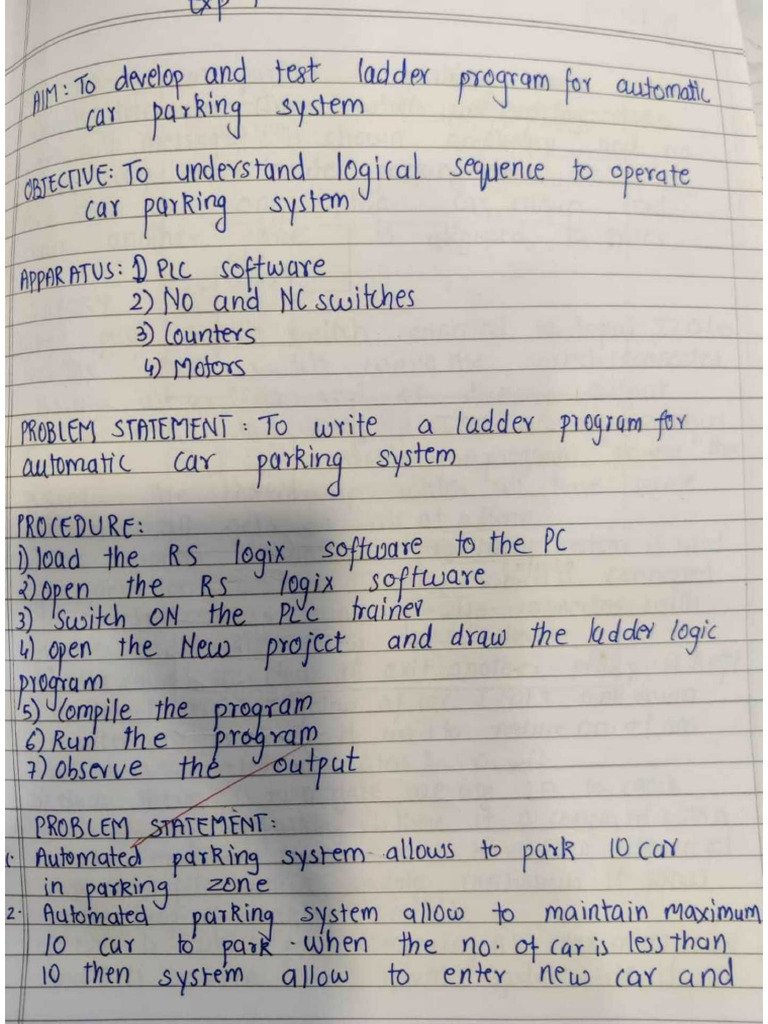 Exp
AIM: To develop and test ladder program for automatic
car parking system
OBJECTIVE: To understand logical sequence to operate
car parking system
APPARATUS: 1) PLC software
2) NO and NC switches
3) Counters
4) Motors
PROBLEM STATEMENT: To write a ladder program for
automatic car parking system
PROCEDURE:
1) load the RS logix software to the PC
2) open the RS logix software
3) Switch ON the PLC trainer
4) open the New project and draw the ladder logic
program
5) Compile the program
6) Run the program
7) Observe the output
PROBLEM STATEMENT:
1. Automated parking system allows to park 10 car
in parking zone
2. Automated parking system allow to maintain maximum
10 car to park. when the no. of car is less than
10 then system allow to enter new car and